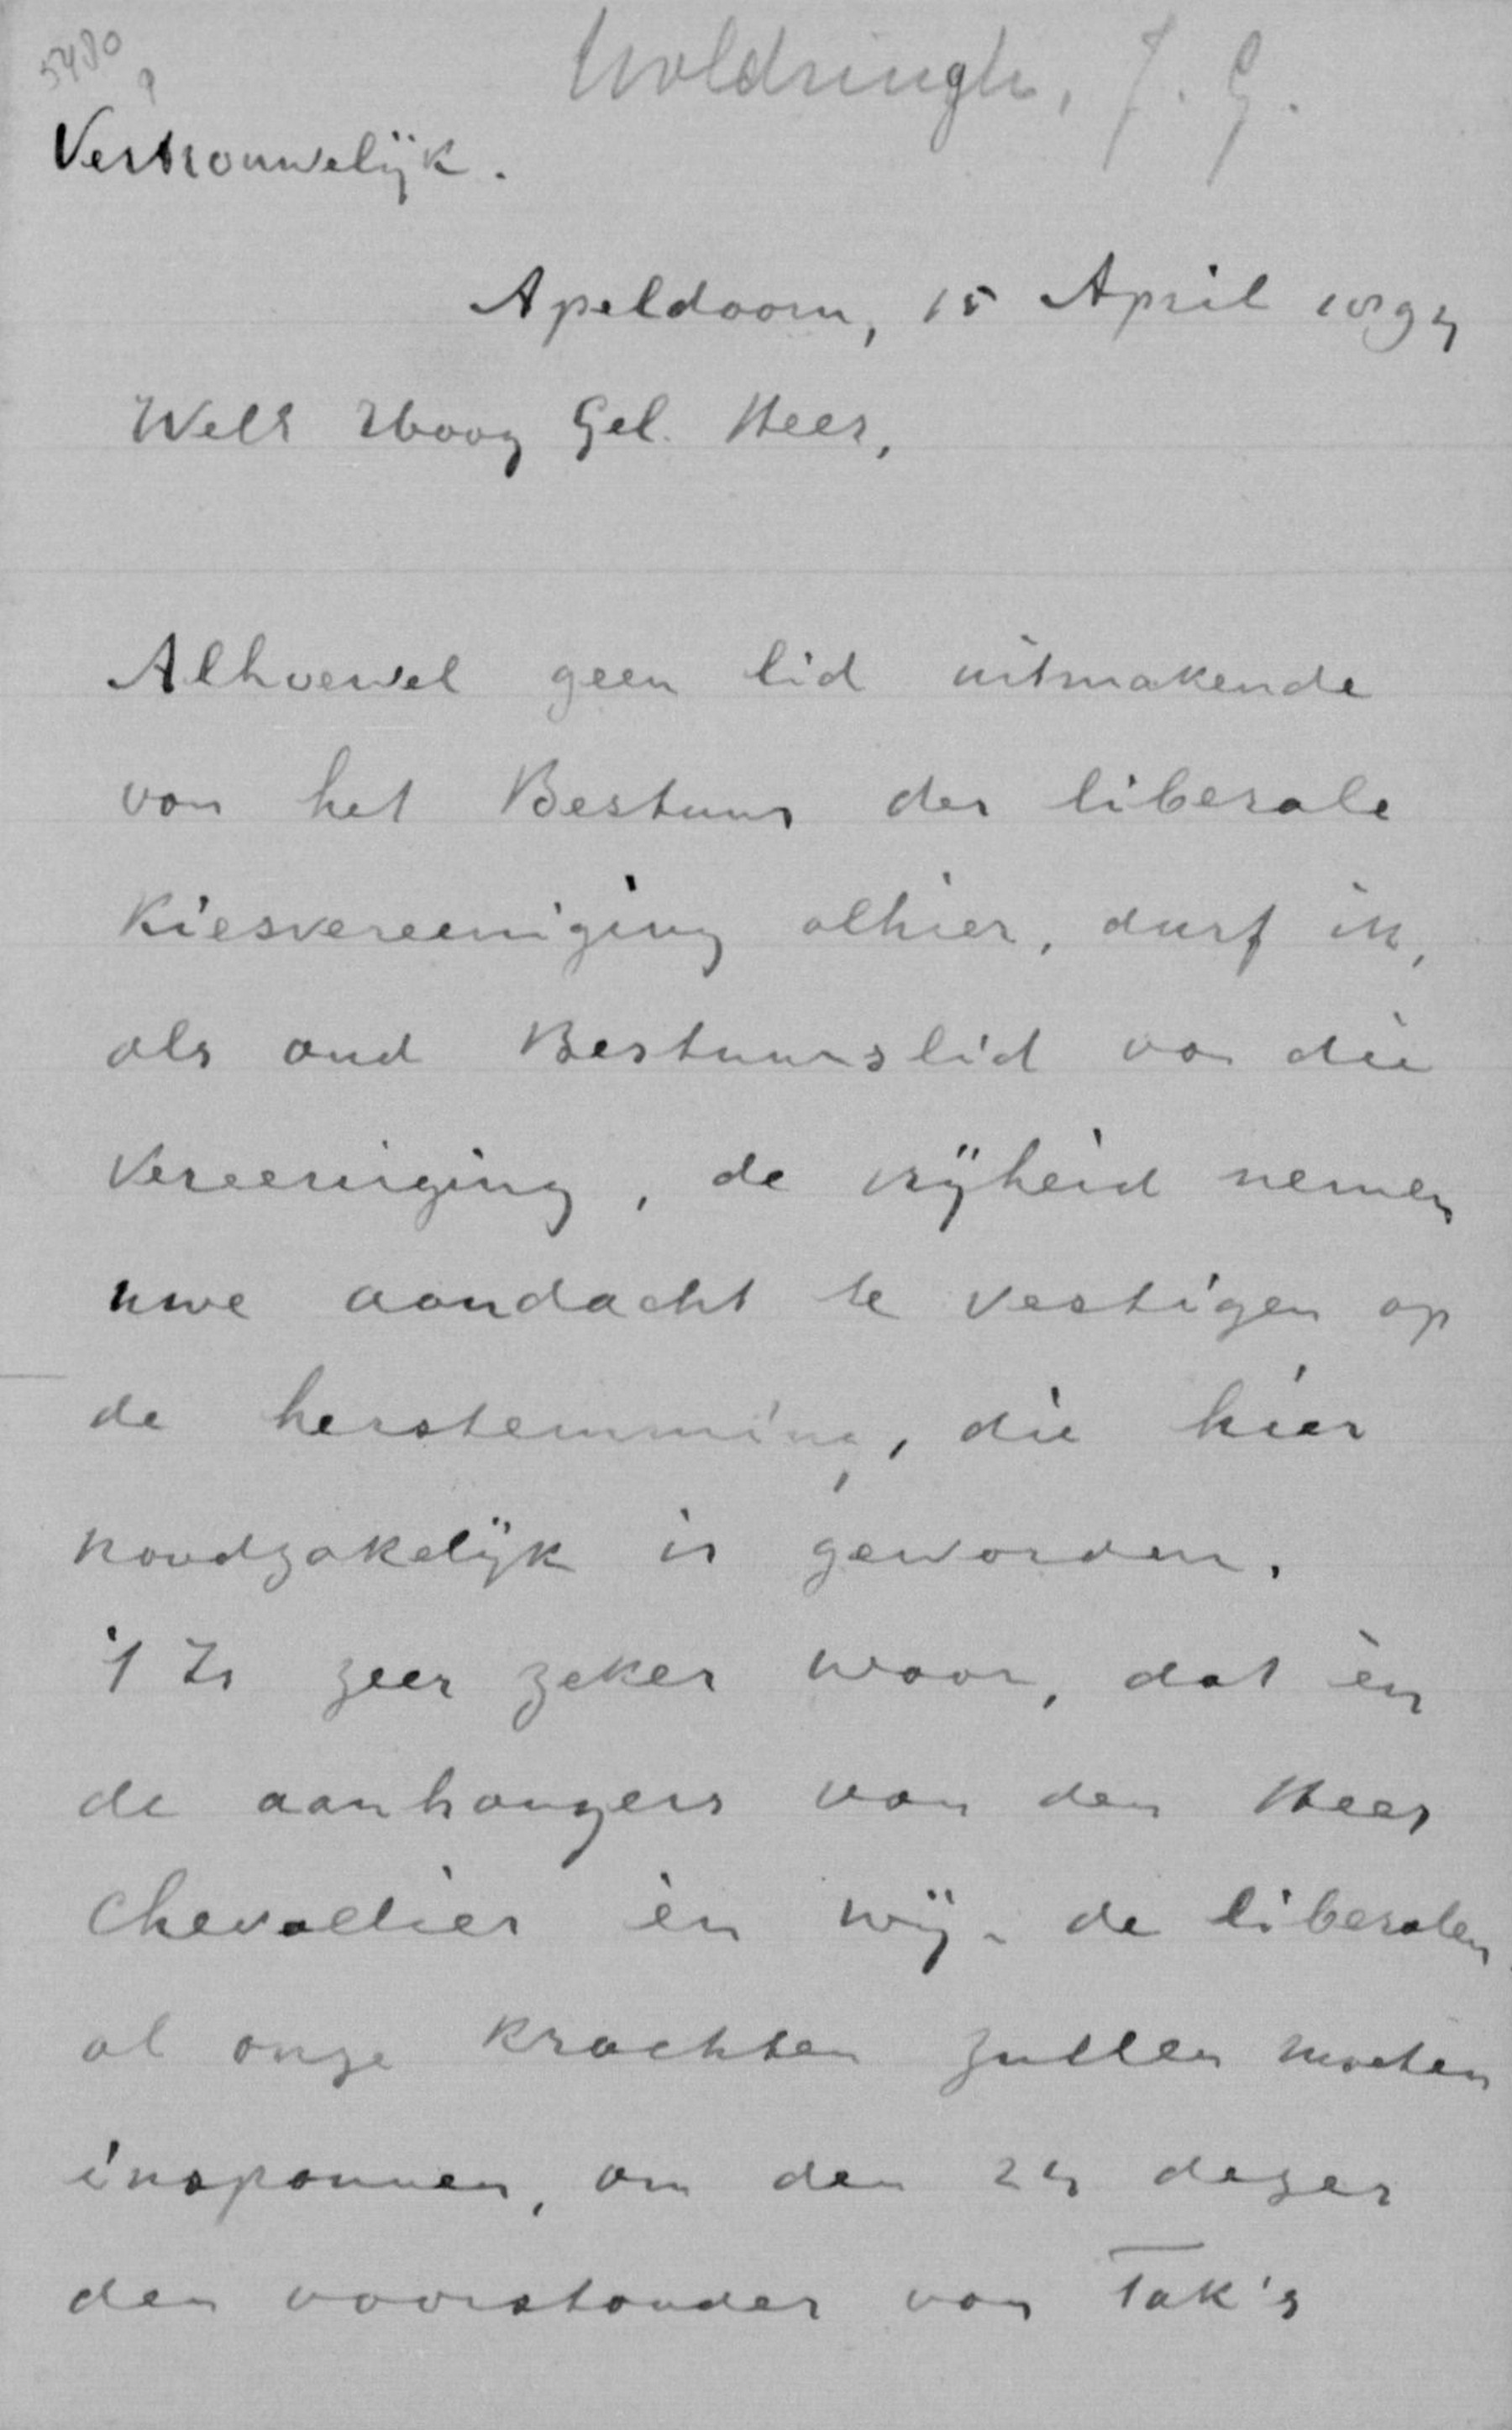 5480
Woldringh, J. G.
Vertrouwelijk.
Apeldoorn, 15 April 1894
WelEd Hoog Gel. Heer,
Alhoewel geen lid uitmakende
van het Bestuur der liberale
Kiesvereeniging alhier, durf ik,
als oud Bestuurslid van die
Vereeniging, de vrijheid nemen
uwe aandacht te vestigen op
de herstemming, die hier
noodzakelijk is geworden.
't Is zeer zeker waar, dat èn
de aanhangers van den Heer
Chevallier èn wij - de liberalen
al onze krachten zullen moeten
inspannen, om den 24 dezer
den voorstander van Tak's